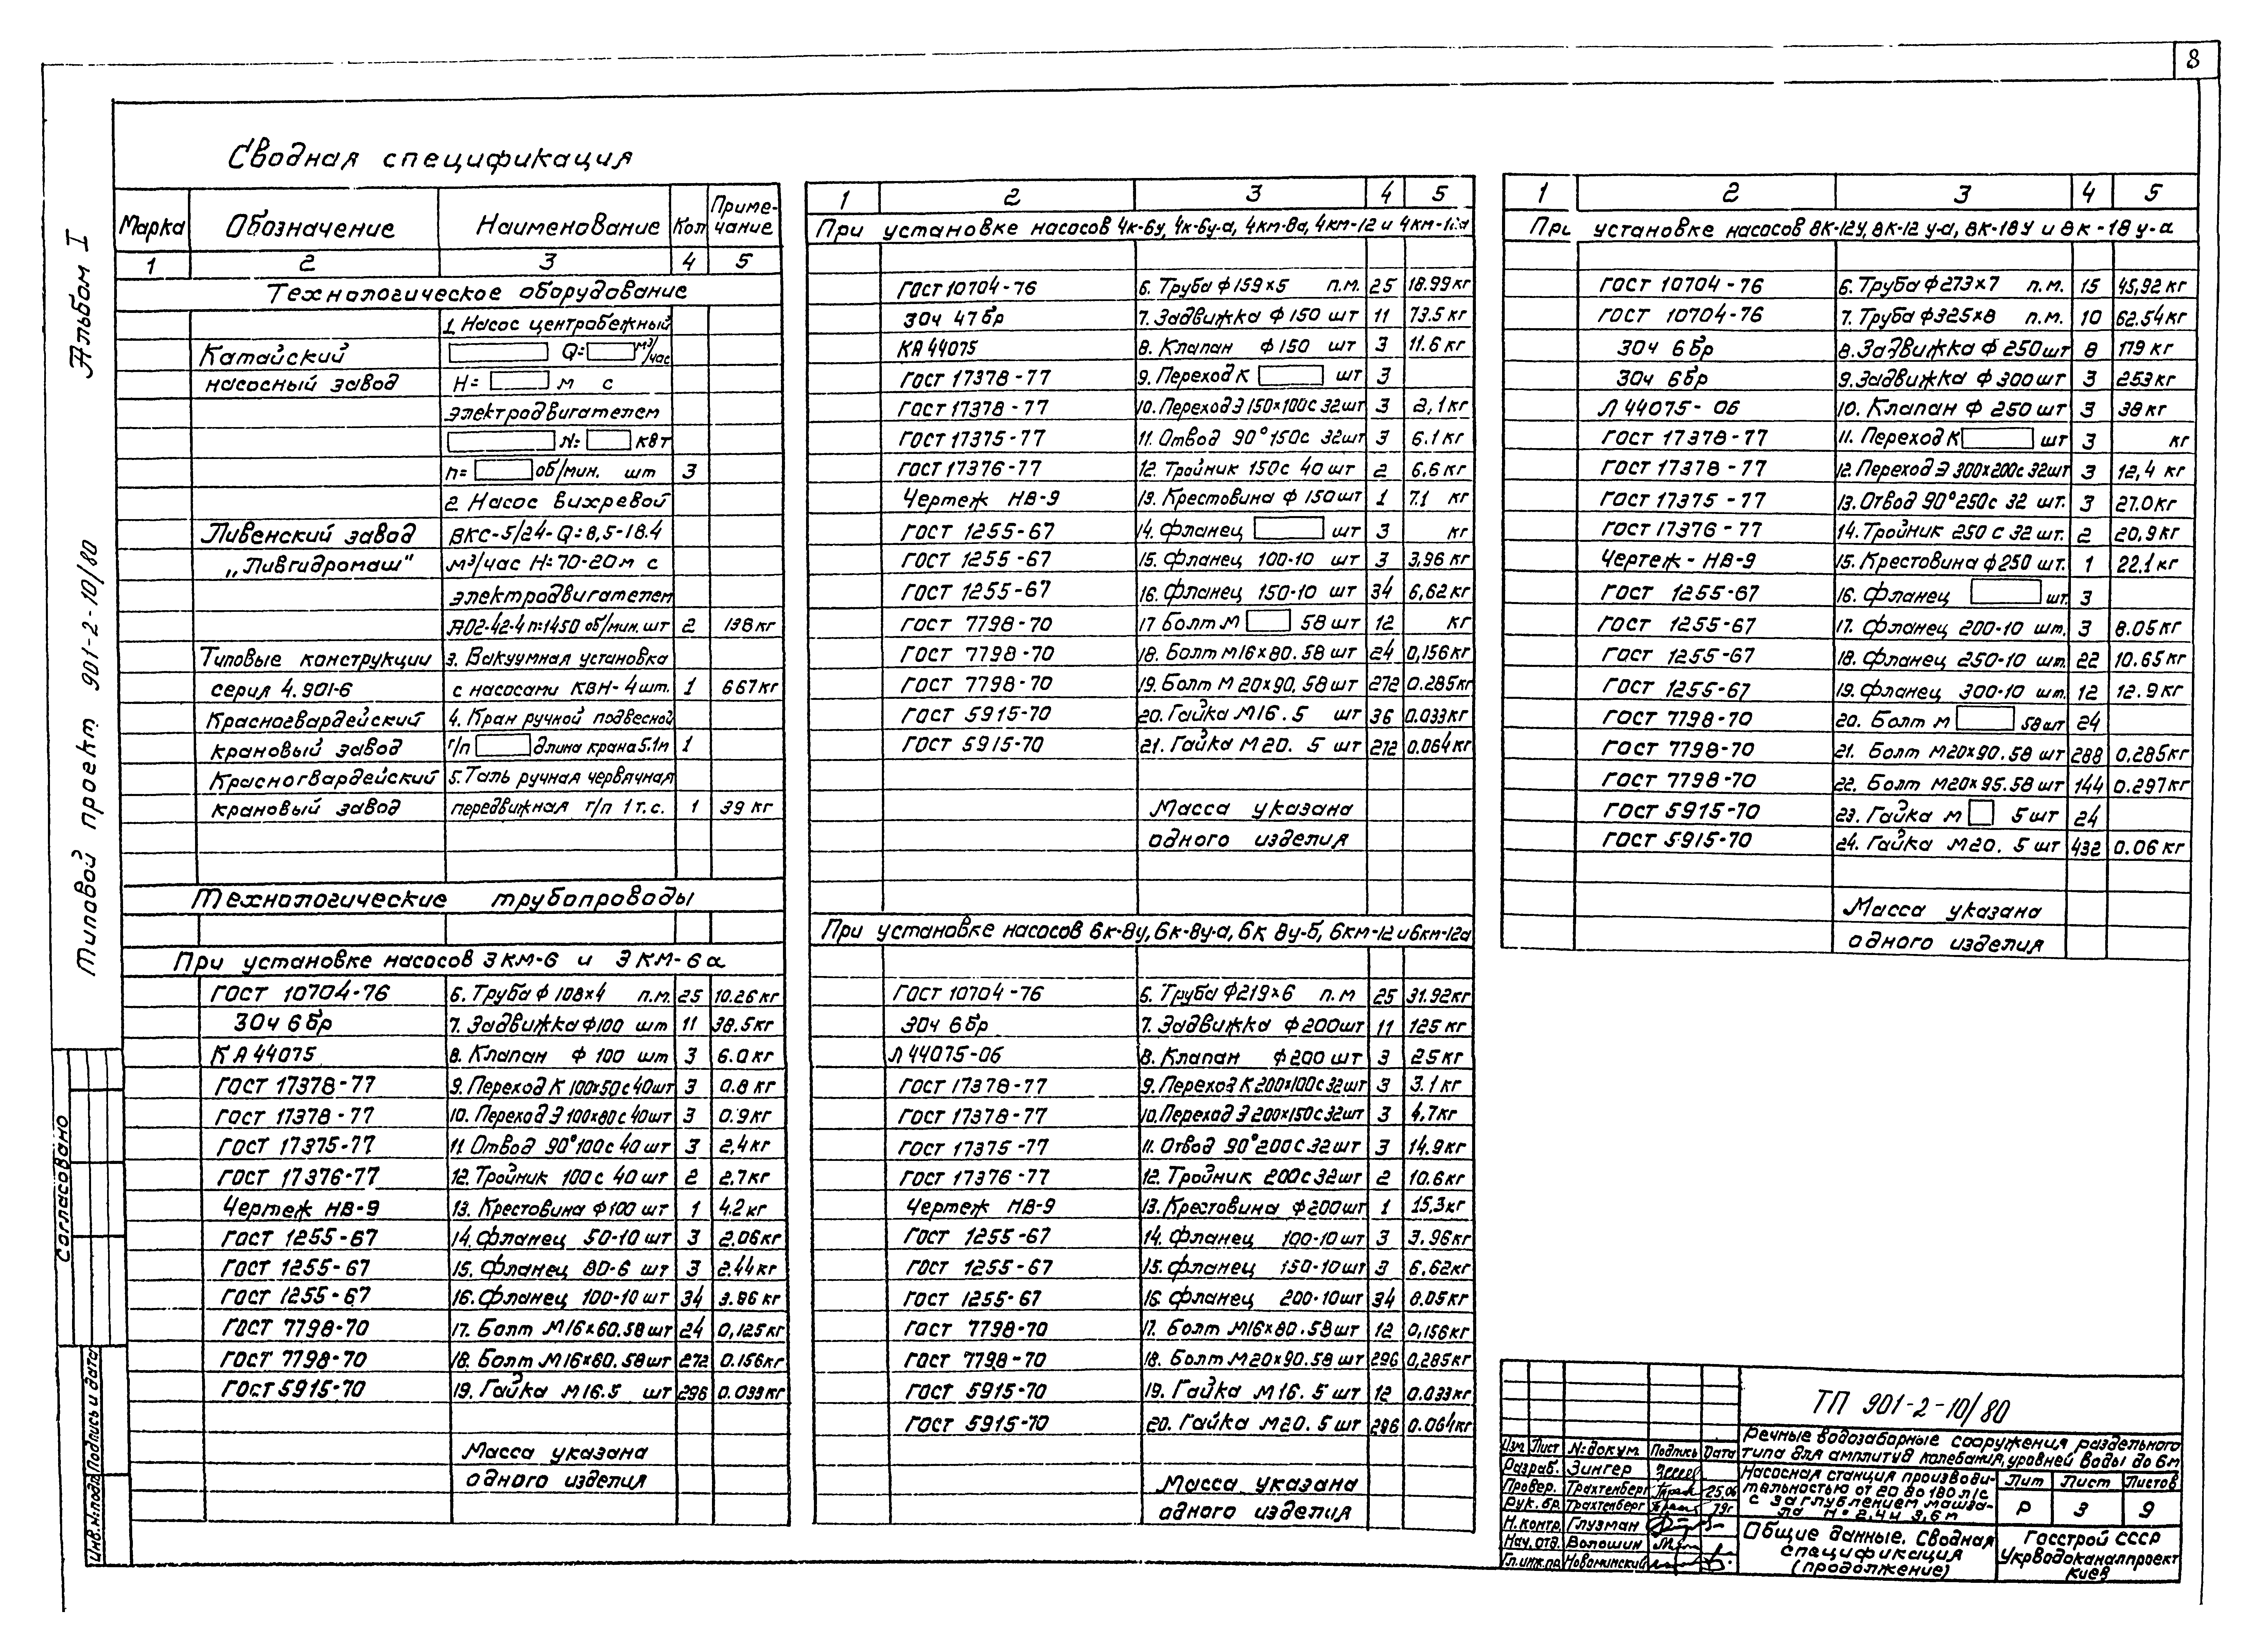 8
Альбом I
Типовой проект 901-2-10/80
Согласовано
Инв.№подл. Подпись и дата
Сводная спецификация
Марка Обозначение Наименование Кол Примечание
1 2 3 4 5
Технологическое оборудование
1. Насос центробежный
Катайский Q= м³/час
насосный завод H= м с
электродвигателем
N= квт
n= об/мин. шт 3
2. Насос вихревой
Ливенский завод ВКС-5/24- Q=8,5-18.4
„Ливгидромаш" м³/час H=70-20м с
электродвигателем
АО2-42-4 n=1450 об/мин. шт 2 138 кг
Типовые конструкции 3. Вакуумная установка
серия 4.901-6 с насосами КВН-4 шт. 1 667 кг
Красногвардейский 4. Кран ручной подвесной
крановый завод г/п длина крана 5.1м 1
Красногвардейский 5. Таль ручная червячная
крановый завод передвижная г/п 1 т.с. 1 39 кг
Технологические трубопроводы
При установке насосов 3КМ-6 и 3КМ-6а
ГОСТ 10704-76 6. Труба ф 108×4 п.м. 25 10.26 кг
30ч 6бр 7. Задвижка ф100 шт 11 38.5 кг
КА 44075 8. Клапан ф 100 шт 3 6.0 кг
ГОСТ 17378-77 9. Переход К 100×50с 40шт 3 0.8 кг
ГОСТ 17378-77 10. Переход Э 100×80с 40шт 3 0.9 кг
ГОСТ 17375-77 11 Отвод 90°100с 40 шт 3 2,4 кг
ГОСТ 17376-77 12. Тройник 100с 40 шт 2 2.7 кг
Чертеж НВ-9 13. Крестовина ф100 шт 1 4.2 кг
ГОСТ 1255-67 14. Фланец 50-10 шт 3 2.06кг
ГОСТ 1255-67 15. Фланец 80-6 шт 3 2.44кг
ГОСТ 1255-67 16. Фланец 100-10 шт 34 3.96 кг
ГОСТ 7798-70 17. Болт М16×60.58 шт 24 0,125кг
ГОСТ 7798-70 18. Болт М16×80.58шт 272 0.156кг
ГОСТ 5915-70 19. Гайка М16.5 шт 296 0.033кг
Масса указана
одного изделия
1 2 3 4 5
При установке насосов 4к-6у, 4к-6у-а, 4км-8а, 4км-12 и 4км-12а
ГОСТ 10704-76 6. Труба ф 159×5 п.м. 25 18.99 кг
30ч 47бр 7. Задвижка ф 150 шт 11 73.5 кг
КА 44075 8. Клапан ф150 шт 3 11.6 кг
ГОСТ 17378-77 9. Переход К шт 3
ГОСТ 17378-77 10. Переход Э 150×100с 32шт 3 2,1 кг
ГОСТ 17375-77 11. Отвод 90°150с 32шт 3 6.1 кг
ГОСТ 17376-77 12. Тройник 150с 40 шт 2 6.6 кг
Чертеж НВ-9 13. Крестовина ф 150шт 1 7.1 кг
ГОСТ 1255-67 14. Фланец шт 3 кг
ГОСТ 1255-67 15. Фланец 100-10 шт 3 3,96 кг
ГОСТ 1255-67 16. Фланец 150-10 шт 34 6,62кг
ГОСТ 7798-70 17 Болт М 58 шт 12 кг
ГОСТ 7798-70 18. Болт М16×80.58 шт 24 0,156кг
ГОСТ 7798-70 19. Болт М 20×90.58 шт 272 0.285кг
ГОСТ 5915-70 20. Гайка М16.5 шт 36 0.033кг
ГОСТ 5915-70 21. Гайка М20. 5 шт 272 0.064кг
Масса указана
одного изделия
При установке насосов 6к-8у, 6к-8у-а, 6к 8у-б, 6км-12 и 6км-12а
ГОСТ 10704-76 6. Труба ф219×6 п.м 25 31.92кг
30ч 6бр 7. Задвижка ф200шт 11 125 кг
Л 44075-06 8. Клапан ф200 шт 3 25 кг
ГОСТ 17378-77 9. Переход К 200×100с 32шт 3 3.1 кг
ГОСТ 17378-77 10. Переход Э 200×150с 32шт 3 4,7кг
ГОСТ 17375-77 11. Отвод 90°200с 32шт 3 14.9кг
ГОСТ 17376-77 12. Тройник 200с 32шт 2 10.6кг
Чертеж НВ-9 13. Крестовина ф200шт 1 15,3кг
ГОСТ 1255-67 14. Фланец 100-10шт 3 3.96кг
ГОСТ 1255-67 15. Фланец 150-10шт 3 6.62кг
ГОСТ 1255-67 16. Фланец 200-10шт 34 8.05кг
ГОСТ 7798-70 17. Болт М16×80.58шт 12 0,156кг
ГОСТ 7798-70 18. Болт М20×90.58 шт 296 0,285кг
ГОСТ 5915-70 19. Гайка М16. 5 шт 12 0.033кг
ГОСТ 5915-70 20. Гайка М20. 5 шт 296 0.064кг
Масса указана
одного изделия
1 2 3 4 5
При установке насосов 8К-12У, 8К-12 у-а, 8К-18У и 8К-18 у-а
ГОСТ 10704-76 6. Труба ф273×7 п.м. 15 45,92 кг
ГОСТ 10704-76 7. Труба ф325×8 п.м. 10 62.54кг
30ч 6бр 8. Задвижка ф 250шт 8 179 кг
30ч 6бр 9. Задвижка ф 300шт 3 253кг
Л 44075-06 10. Клапан ф 250 шт 3 38кг
ГОСТ 17378-77 11. Переход К шт 3 кг
ГОСТ 17378-77 12. Переход Э 300×200с 32шт 3 12,4 кг
ГОСТ 17375-77 13. Отвод 90°250с 32 шт. 3 27.0кг
ГОСТ 17376-77 14. Тройник 250 с 32 шт. 2 20,9кг
Чертеж-НВ-9 15. Крестовина ф250 шт. 1 22.1кг
ГОСТ 1255-67 16. Фланец шт. 3
ГОСТ 1255-67 17. Фланец 200-10 шт. 3 8.05кг
ГОСТ 1255-67 18. Фланец 250-10 шт. 22 10.65кг
ГОСТ 1255-67 19. Фланец 300-10 шт. 12 12.9кг
ГОСТ 7798-70 20. Болт М 58шт 24
ГОСТ 7798-70 21. Болт М20×90.58 шт 288 0,285кг
ГОСТ 7798-70 22. Болт М20×95.58шт 144 0.297кг
ГОСТ 5915-70 23. Гайка М 5 шт 24
ГОСТ 5915-70 24. Гайка М20. 5 шт 432 0.06 кг
Масса указана
одного изделия
ТП 901-2-10/80
Речные водозаборные сооружения раздельного
типа для амплитуд колебания уровней воды до 6м
Изм Лист №докум Подпись Дата
Разраб. Зингер
Провер. Трахтенберг 25.06
Рук.бр. Трахтенберг 79г
Н.контр. Глузман
Нач.отд. Волошин
Гл.инж.пр. Новоминский
Насосная станция производи-
тельностью от 20 до 180 л/с
с заглублением машза-
ла H=2,4 и 3,6 м
Лит Лист Листов
Р 3 9
Общие данные. Сводная
спецификация
(продолжение)
Госстрой СССР
Укрводоканалпроект
Киев